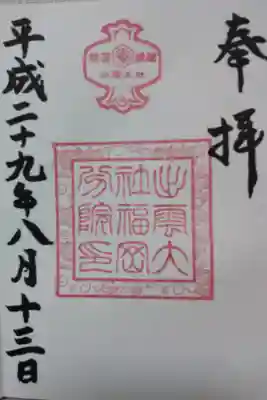 奉拝
出雲大
社福岡
分院印
平成二十九年八月十三日